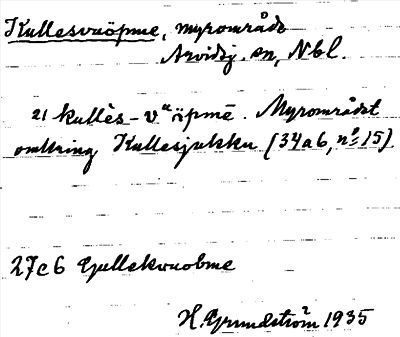 Kullesvuöpme, myrområde
Arvidsj. sn, Nbl.
21 kullès-vᵘäpmē. Myrområdet
omkring Kullesjukku (34a6, nº 15)
27c6 Gullekvuobme
H. Grundström 1935